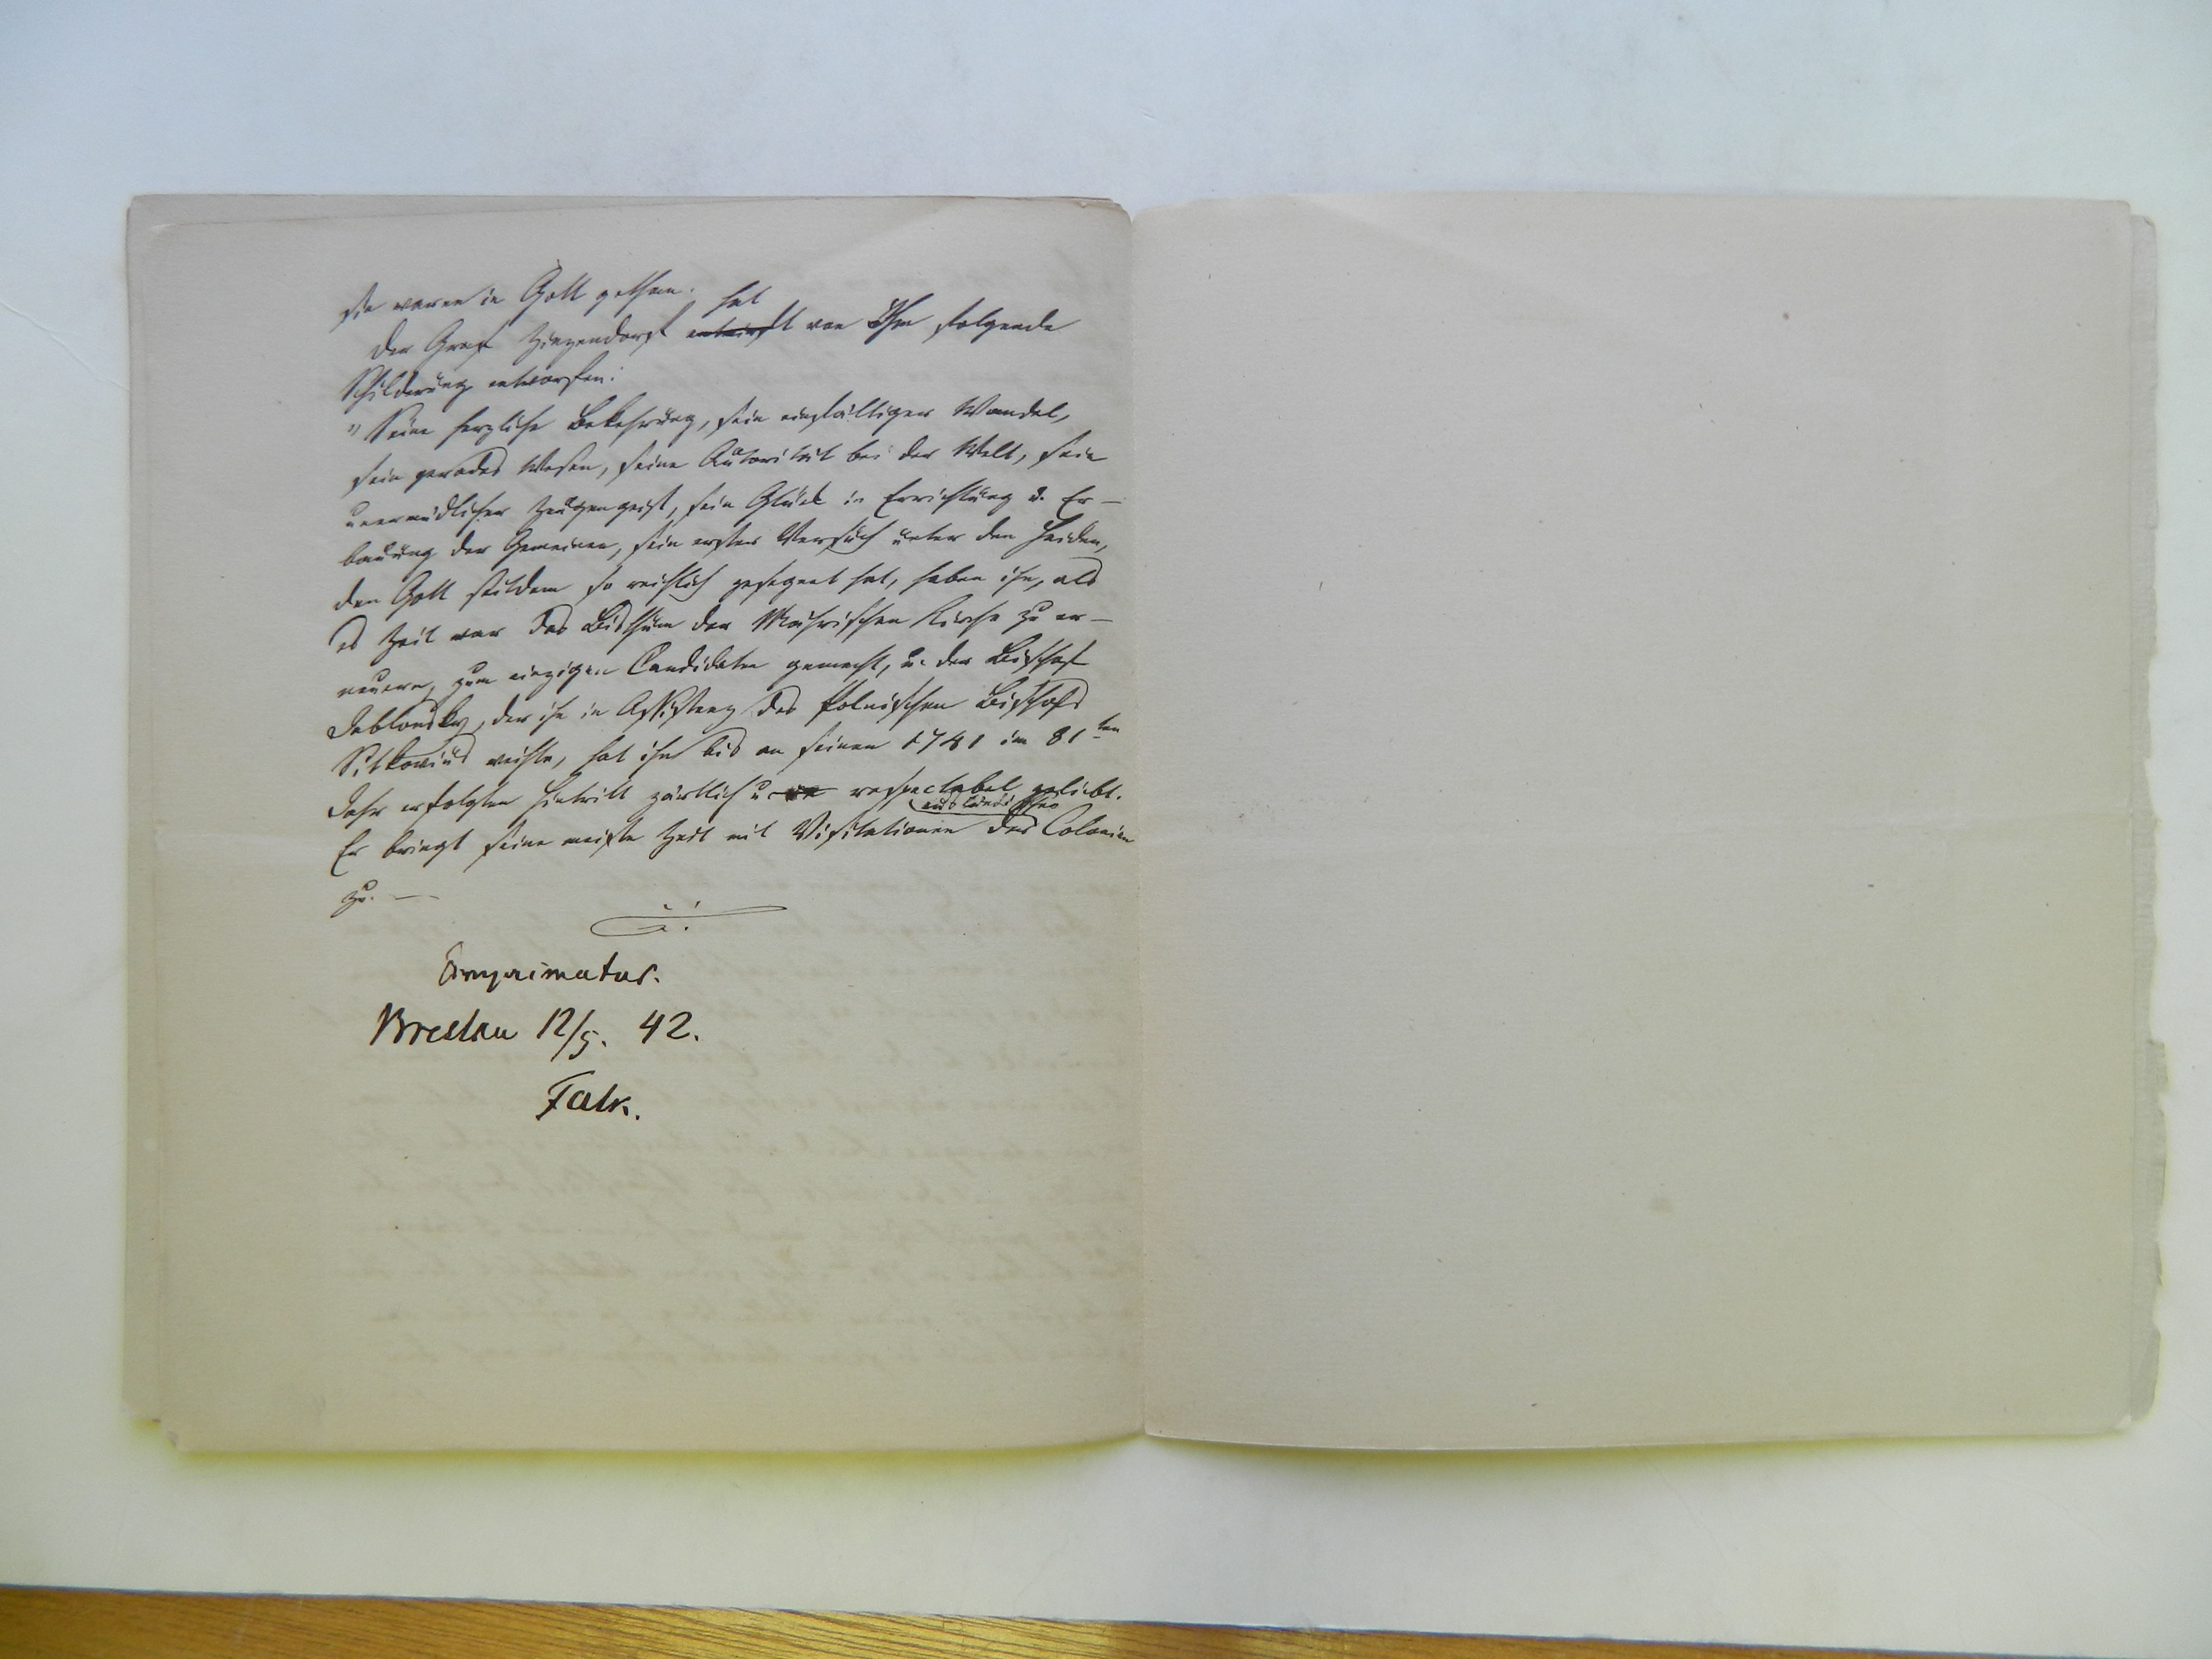 sie waren in Gott gethan.
Der Graf Zinzendorf entwirft hat von Ihm folgende
Schilderung entworfen:
"Seine herzliche Bekehrung, sein einfältiger Wandel,
sein gerades Wesen, seine Autorität bei der Welt, sein
unermüdlicher Zeugengeist, sein Glück in Errichtung u. Er-
bauung der Gemeinen, sein erster Versuch unter den Heiden,
den Gott seitdem so reichlich gesegnet hat, haben ihn, als
es Zeit war das Bisthum der Mährischen Kirche zu er-
neuern, zum einzigen Candidaten gemacht, u. der Bischof
Jablonsky, der ihn in Assistenz des Polnischen Bischofs
Sitkovius weihte, hat ihn bis an seinen 1741 im 81ten
Jahr erfolgten Hintritt zärtlich u. respectabel geliebt.
Er bringt seine meiste Zeit mit Visitationen der ausländischen Colonien
zu. —
Imprimatur.
Breslau 12/5. 42.
Falk.